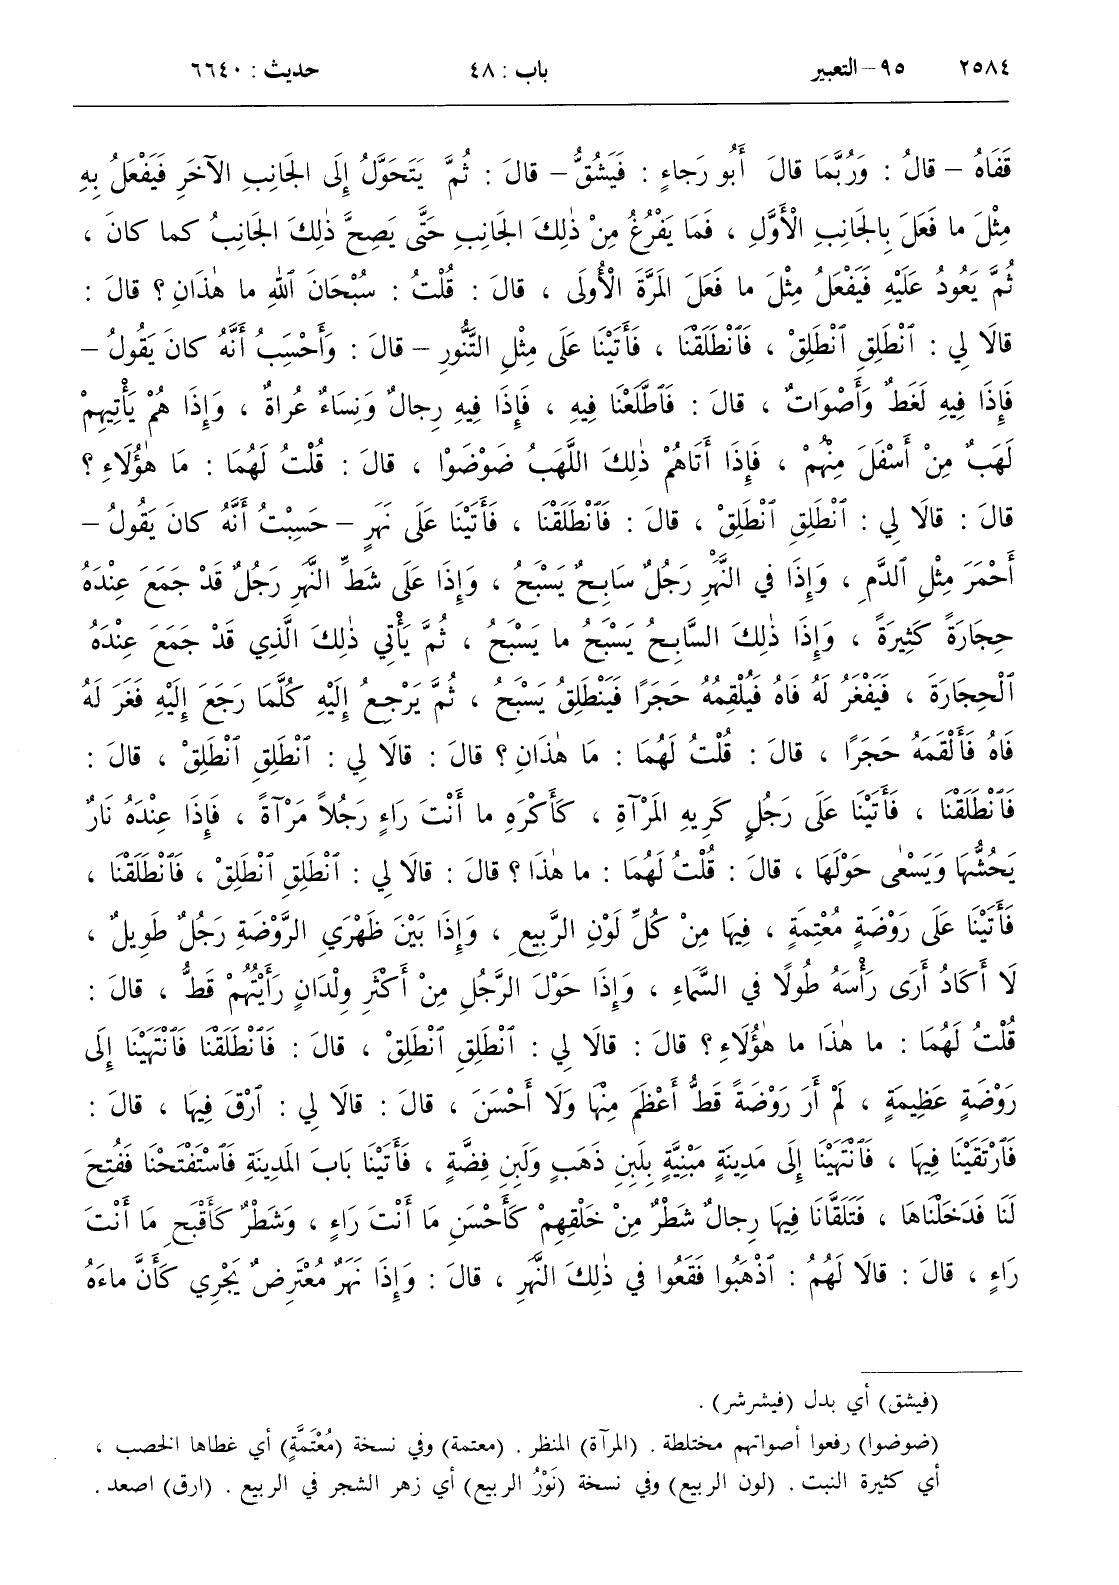 ٢٥٨٤ ٩٥ – التعبير باب : ٤٨ حديث : ٦٦٤٠
قَفَاهُ – قالُ : وَرُبَّمَا قالَ أَبُو رَجاءٍ : فَيَشُقُّ – قالَ : ثُمَّ يَتَحَوَّلُ إِلَى الجَانِبِ الآخَرِ فَيَفْعَلُ بِهِ
مِثْلَ ما فَعَلَ بِالجَانِبِ الْأَوَّلِ ، فَمَا يَفْرُغُ مِنْ ذٰلِكَ الجَانِبِ حَتَّى يَصِحَّ ذٰلِكَ الجَانِبُ كما كانَ ،
ثُمَّ يَعُودُ عَلَيْهِ فَيَفْعَلُ مِثْلَ ما فَعَلَ المَرَّةَ الْأُولَى ، قالَ : قُلْتُ : سُبْحَانَ ٱللهِ ما هٰذَانِ ؟ قالَ :
قالَا لِي : ٱنْطَلِقِ ٱنْطَلِقْ ، فَٱنْطَلَقْنَا ، فَأَتَيْنَا عَلَى مِثْلِ التَّنُّورِ – قالَ : وَأَحْسِبُ أَنَّهُ كانَ يَقُولُ –
فَإِذَا فِيهِ لَغَطٌ وَأَصْوَاتٌ ، قالَ : فَٱطَّلَعْنَا فِيهِ ، فَإِذَا فِيهِ رِجالٌ وَنِسَاءٌ عُراةٌ ، وَإِذَا هُمْ يَأْتِيهِمْ
لَهَبٌ مِنْ أَسْفَلَ مِنْهُمْ ، فَإِذَا أَتَاهُمْ ذٰلِكَ اللَّهَبُ ضَوْضَوْا ، قالَ : قُلْتُ لَهُمَا : مَا هٰؤُلَاءِ ؟
قالَ : قالَا لِي : ٱنْطَلِقِ ٱنْطَلِقْ ، قالَ : فَٱنْطَلَقْنَا ، فَأَتَيْنَا عَلَى نَهَرٍ – حَسِبْتُ أَنَّهُ كانَ يَقُولُ –
أَحْمَرَ مِثْلِ ٱلدَّمِ ، وَإِذَا في النَّهْرِ رَجُلٌ سَابِحٌ يَسْبَحُ ، وَإِذَا عَلَى شَطِّ النَّهَرِ رَجُلٌ قَدْ جَمَعَ عِنْدَهُ
حِجَارَةً كَثِيرَةً ، وَإِذَا ذٰلِكَ السَّابِحُ يَسْبَحُ ما يَسْبَحُ ، ثُمَّ يَأْتِي ذٰلِكَ الَّذِي قَدْ جَمَعَ عِنْدَهُ
ٱلْحِجَارَةَ ، فَيَفْغَرُ لَهُ فَاهُ فَيُلْقِمُهُ حَجَرًا فَيَنْطَلِقُ يَسْبَحُ ، ثُمَّ يَرْجِعُ إِلَيْهِ كُلَّمَا رَجَعَ إِلَيْهِ فَغَرَ لَهُ
فَاهُ فَأَلْقَمَهُ حَجَرًا ، قالَ : قُلْتُ لَهُمَا : مَا هٰذَانِ ؟ قالَ : قالَا لِي : ٱنْطَلِقِ ٱنْطَلِقْ ، قالَ :
فَٱنْطَلَقْنَا ، فَأَتَيْنَا عَلَى رَجُلٍ كَرِيهِ المَرْآةِ ، كَأَكْرَهِ ما أَنْتَ رَاءٍ رَجُلاً مَرْآةً ، فَإِذَا عِنْدَهُ نَارٌ
يَحُشُّهَا وَيَسْعٰى حَوْلَهَا ، قالَ : قُلْتُ لَهُمَا : ما هٰذَا ؟ قالَ : قالَا لِي : ٱنْطَلِقِ ٱنْطَلِقْ ، فَٱنْطَلَقْنَا ،
فَأَتَيْنَا عَلَى رَوْضَةٍ مُعْتِمَةٍ ، فِيهَا مِنْ كُلِّ لَوْنِ الرَّبِيعِ ، وَإِذَا بَيْنَ ظَهْرَيِ الرَّوْضَةِ رَجُلٌ طَوِيلٌ ،
لَا أَكادُ أَرَى رَأْسَهُ طُولًا في السَّمَاءِ ، وَإِذَا حَوْلَ الرَّجُلِ مِنْ أَكْثَرِ وِلْدَانٍ رَأَيْتُهُمْ قَطُّ ، قالَ :
قُلْتُ لَهُمَا : ما هٰذَا ما هٰؤُلَاءِ ؟ قالَ : قالَا لِي : ٱنْطَلِقِ ٱنْطَلِقْ ، قالَ : فَٱنْطَلَقْنَا فَٱنْتَهَيْنَا إِلَى
رَوْضَةٍ عَظِيمَةٍ ، لَمْ أَرَ رَوْضَةً قَطُّ أَعْظَمَ مِنْهَا وَلَا أَحْسَنَ ، قالَ : قالَا لِي : ٱرْقَ فِيهَا ، قالَ :
فَٱرْتَقَيْنَا فِيهَا ، فَٱنْتَهَيْنَا إِلَى مَدِينَةٍ مَبْنِيَّةٍ بِلَبِنِ ذَهَبٍ وَلَبِنِ فِضَّةٍ ، فَأَتَيْنَا بَابَ المَدِينَةِ فَٱسْتَفْتَحْنَا فَفُتِحَ
لَنَا فَدَخَلْنَاهَا ، فَتَلَقَّانَا فِيهَا رِجالٌ شَطْرٌ مِنْ خَلْقِهِمْ كَأَحْسَنِ مَا أَنْتَ رَاءٍ ، وَشَطْرٌ كَأَقْبَحِ مَا أَنْتَ
رَاءٍ ، قالَ : قالَا لَهُمُ : ٱذْهَبُوا فَقَعُوا في ذٰلِكَ النَّهَرِ ، قالَ : وَإِذَا نَهَرٌ مُعْتَرِضٌ يَجْرِي كَأَنَّ ماءَهُ
(فيشق) أي بدل (فيشرشر) .
(ضوضوا) رفعوا أصواتهم مختلطة . (المرآة) المنظر . (معتمة) وفي نسخة (مُعْتَمَّةٍ) أي غطاها الخصب ،
أي كثيرة النبت . (لون الربيع) وفي نسخة (نَوْرُ الربيع) أي زهر الشجر في الربيع . (ارق) اصعد .